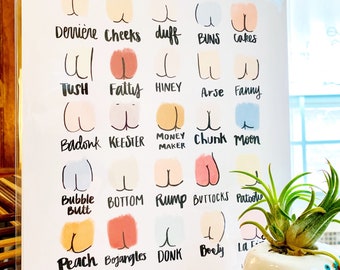 Derrière Cheeks duff BUNS Cakes
TUSH Fatty HINEY Arse Fanny
Badonk KEESTER MONEY MAKER Chunk Moon
Bubble Butt BOTTOM Rump BUTTOCKS
Peach Bojangles DONK Booty